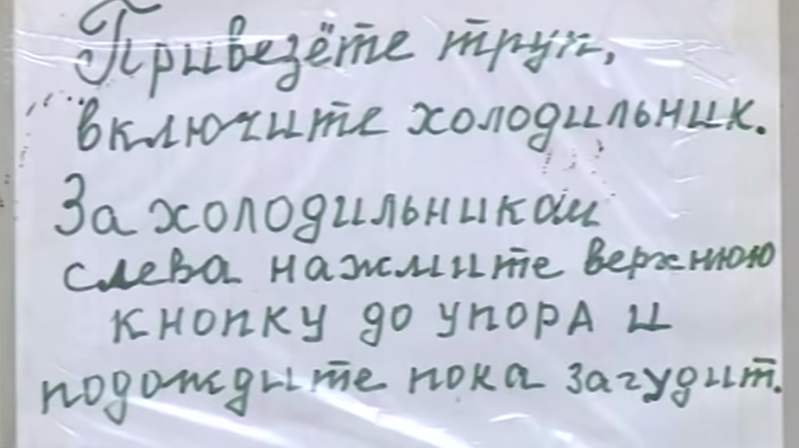 Привезёте труп,
включите холодильник.
За холодильником
слева нажмите верхнюю
кнопку до упора и
подождите пока загудит.